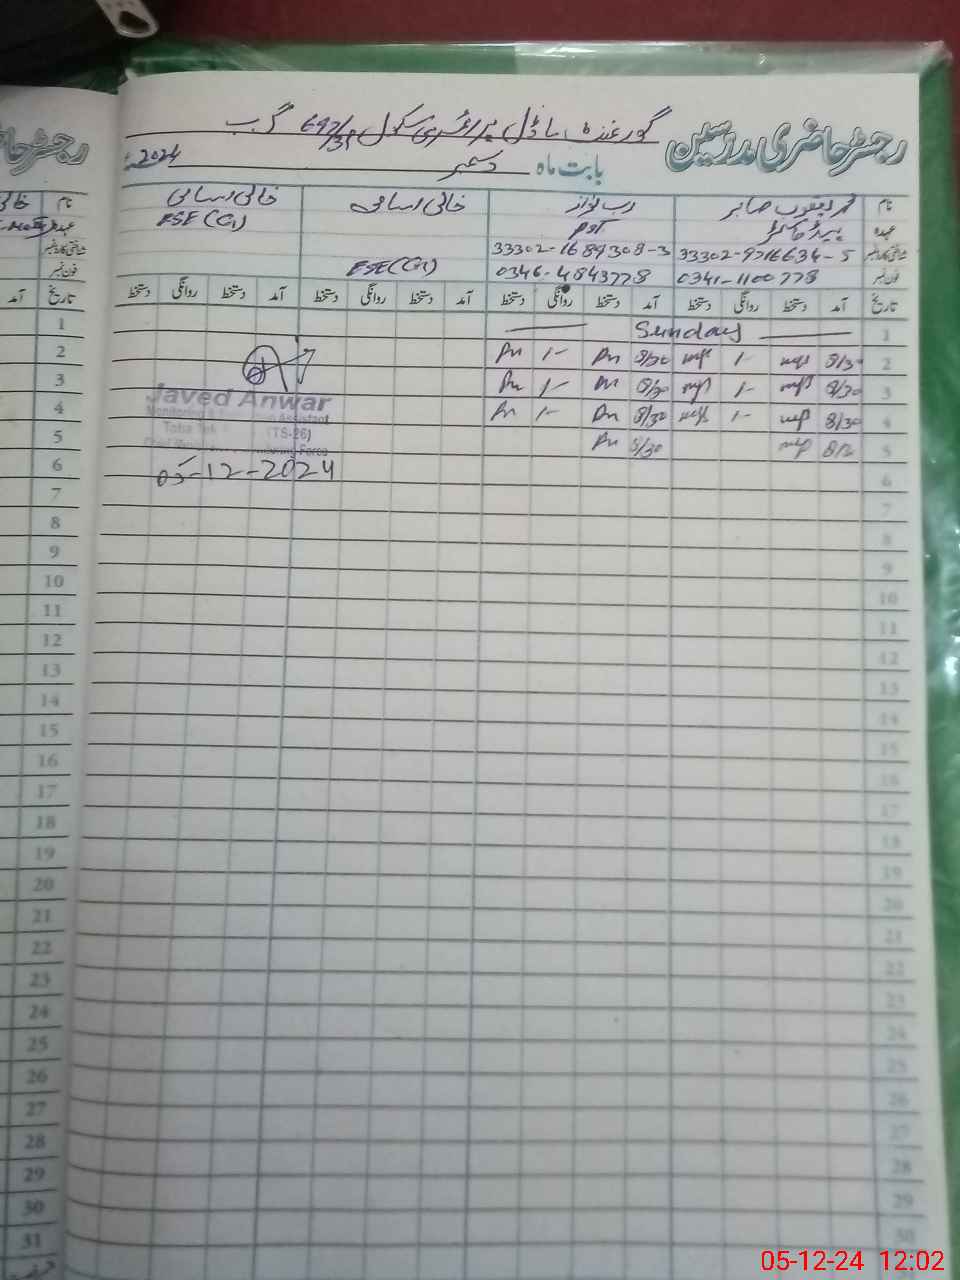 رجسٹر حاضری مدرسین
گورنمنٹ ماڈل پرائمری سکول 692/39 گ ب
بابت ماہ دسمبر 2024ء
نام محمد یعقوب صابر رب نواز خالی اسامی خالی اسامی
عہدہ PST ESE(G) ESE(G)
شناختی کارڈ نمبر 33302-9716634-5 33302-1689308-3
فون نمبر 0341-1100778 0346-4843778
تاریخ آمد دستخط روانگی دستخط آمد دستخط روانگی دستخط آمد دستخط روانگی دستخط آمد دستخط روانگی دستخط
1 Sunday
2 8/30 1- 8/30 1-
3 8/30 1- 8/30 1-
4 8/30 1- 8/30 1-
5 8/30
6
7
8
9
10
11
12
13
14
15
16
17
18
19
20
21
22
23
24
25
26
27
28
29
30
Javed Anwar
Monitoring & Assistant
Toba Tek (TS-26)
Force
05-12-2024
رجسٹر حا
نام خالی
عہدہ
شناختی کارڈ نمبر
فون نمبر
تاریخ آمد
1
2
3
4
5
6
7
8
9
10
11
12
13
14
15
16
17
18
19
20
21
22
23
24
25
26
27
28
29
30
31
05-12-24 12:02